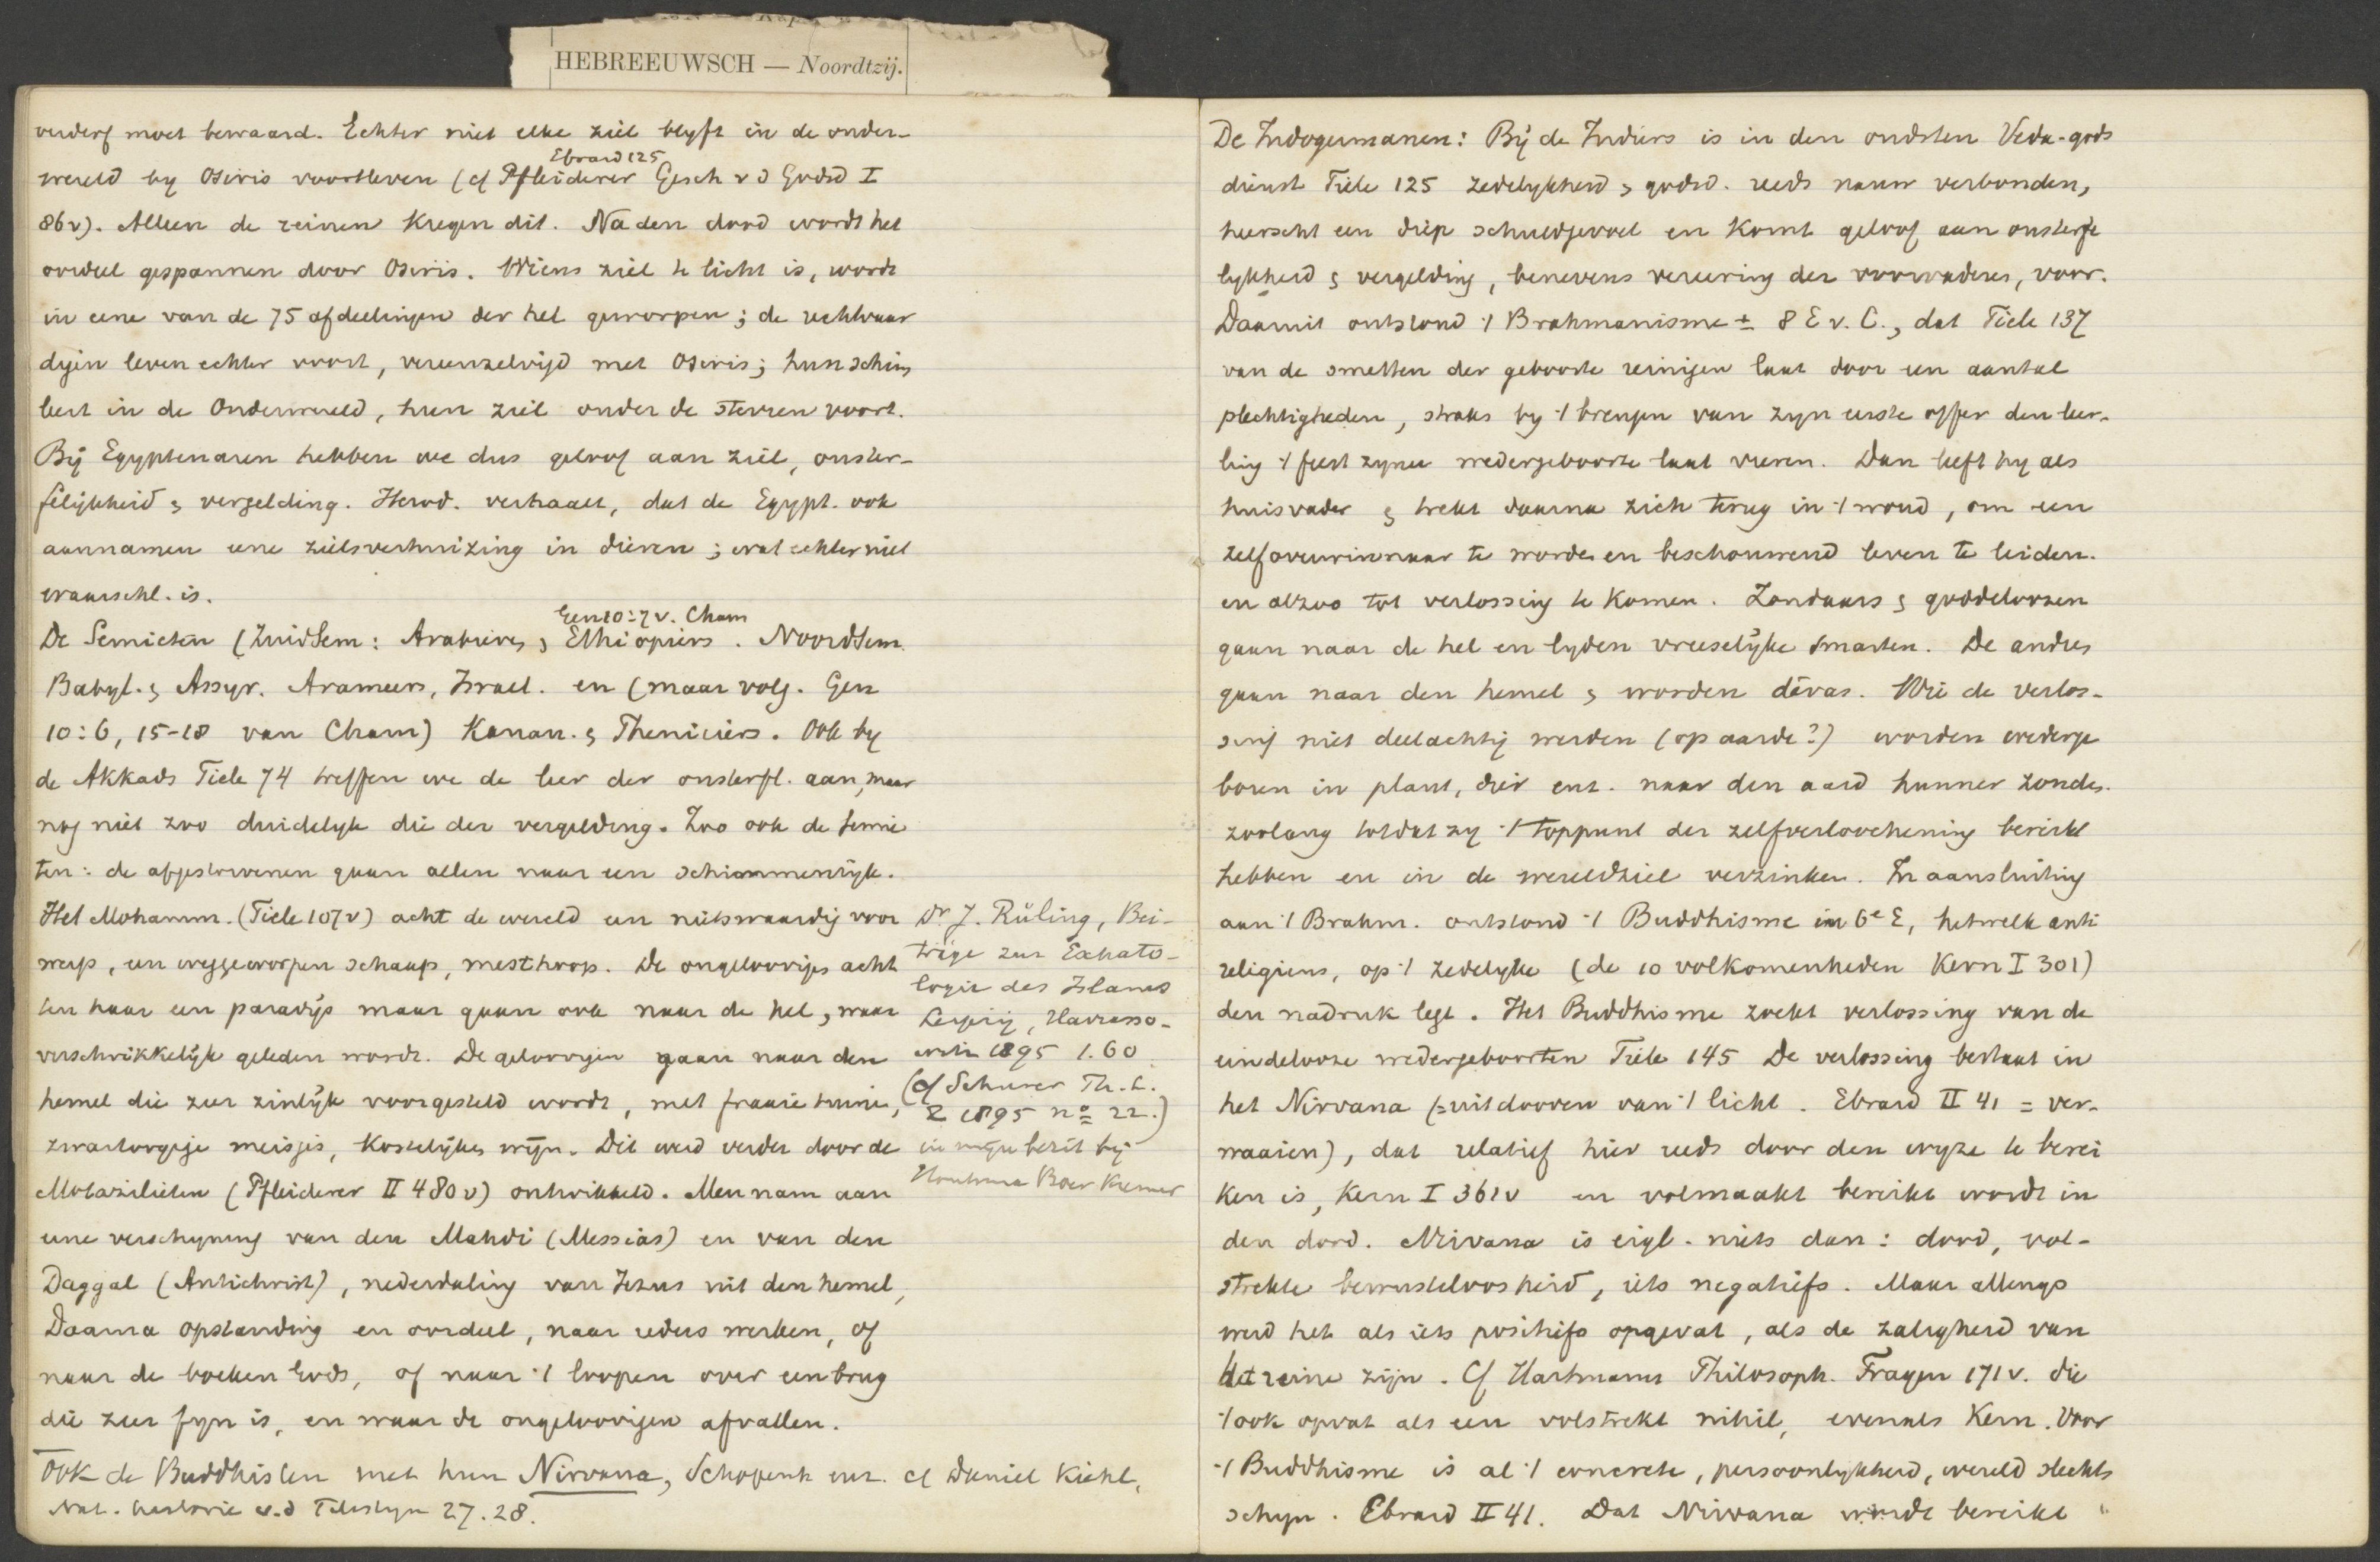 HEBREEUWSCH — Noordtzij.
verderf moet bewaard. Echter niet elke ziel blyft in de onder-
Ebrard 125
wereld by Osiris voortleven (cf Pfleiderer Gesch v d Godsd I
86v). Alleen de reinen kregen dit. Na den dood wordt het
oordeel gespannen door Osiris. Wiens ziel te licht is, wordt
in eene van de 75 afdeelingen der hel geworpen; de rechtvaar
digen leven echter voort, vereenzelvigd met Osiris; hun schim
leeft in de Onderwereld, hun ziel onder de sterren voort.
Bij Egyptenaren hebben we dus geloof aan ziel, onster-
felijkheid & vergelding. Herod. verhaalt, dat de Egypt. ook
aannamen eene zielsverhuizing in dieren; wat echter niet
waarschl. is.
Gen 10:7 v. Cham
De Semieten (ZuidSem: Arabieren & Ethiopiers. NoordSem.
Babyl. & Assyr. Arameers, Israel. en (maar volg. Gen
10:6, 15-18 van Cham) Kanan. & Pheniciërs. Ook by
de Akkads Tiele 74 treffen we de leer der onsterfl. aan, maar
nog niet zoo duidelyk die der vergelding. Zoo ook de Semie
ten: de afgestorvenen gaan allen naar een schimmenrijk.
Het Mohamm. (Tiele 107v) acht de wereld een nietswaardig voor
werp, een weggeworpen schaap, mesthoop. De ongeloovigen acht
ten haar een paradijs maar gaan ook naar de hel, waar
verschrikkelijk geleden wordt. De geloovigen gaan naar den
hemel die zeer zinlijk voorgesteld wordt, met fraaie tuinen,
zwartoogige meisjes, kostelijken wijn. Dit werd verder door de
Motazilieten (Pfleiderer II 480v) ontwikkeld. Men nam aan
eene verschyning van den Mahdi (Messias) en van den
Daggal (Antichrist), nederdaling van Jezus uit den hemel,
Daarna opstanding en oordeel, naar ieders werken, of
naar de boeken Gods, of naar 't loopen over een brug
die zeer fyn is, en waar de ongeloovigen afvallen.
Ook de Buddhisten met hun Nirvana, Schopenh enz. cf Daniel Kiehl,
Nat. historie v.d 27.28.
Dr J. Rüling, Bei-
träge zur Eschato-
logie des Islams
Leipzig, Harrasso-
witz 1895 1.60
(cf Schurer Th. L.
Z 1895 no 22.)
in mijn bezit bij
Houtsma Boer Kremer
De Indogermanen: Bij de Indiers is in den oudsten Veda-gods
dienst Tiele 125 zedelykheid & godsd. reeds nauw verbonden,
heerscht een diep schuldgevoel en komt geloof aan onsterfe
lykheid & vergelding, benevens vereering der voorvaderen, voor.
Daaruit ontstond 't Brahmanisme ± 8 E v. C., dat Tiele 137
van de smetten der geboorte reinigen laat door een aantal
plechtigheden, straks by 't brengen van zyn eerste offer den leer-
ling 't feest zyner wedergeboorte laat vieren. Dan leeft hy als
huisvader & trekt daarna zich terug in 't woud, om een
zelfoverwinnaar te worden en beschouwend leven te leiden.
en alzoo tot verlossing te komen. Zondaars & goddeloozen
gaan naar de hel en lyden vreeselijke smarten. De andren
gaan naar den hemel & worden dēvas. Wie de verlos-
sing niet deelachtig werden (op aarde?) worden wederge
boren in plant, dier enz. naar den aard hunner zonden.
zoolang totdat zy 't toppunt der zelfverloochening bereikt
hebben en in de wereldziel verzinken. In aansluiting
aan 't Brahm. ontstond 't Buddhisme in 6e E, hetwelk anti
religieus, op 't zedelyke (de 10 volkomenheden Kern I 301)
den nadruk legt. Het Buddhisme zoekt verlossing van de
eindelooze wedergeboorten Tiele 145 De verlossing bestaat in
het Nirvana (=uitdooven van 't licht. Ebrard II 41 = ver-
waaien), dat relatief hier reeds door den wyze te berei
ken is, Kern I 361v en volmaakt bereikt wordt in
den dood. Nirvana is eigl. niets dan: dood, vol-
strekte bewusteloosheid, iets negatiefs. Maar allengs
werd het als iets positiefs opgevat, als de zaligheid van
het reine zijn. Cf Hartmann Philosoph. Fragen 171v. die
't ook opvat als een volstrekt nihil, evenals Kern. Voor
't Buddhisme is al 't concrete, persoonlykheid, wereld slechts
schyn. Ebrard II 41. Dat Nirvana wordt bereikt